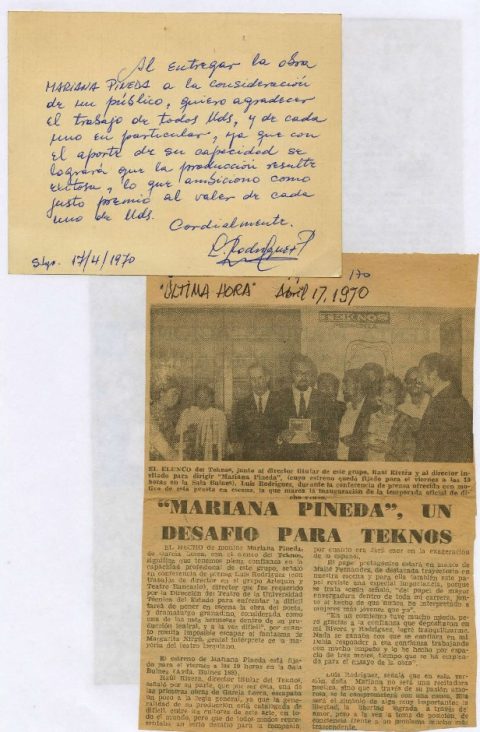 Al entregar la obra
MARIANA PINEDA a la consideración
de un público, quiero agradecer
el trabajo de todos Uds, y de cada
uno en particular, ya que con
el aporte de su capacidad se
logrará que la producción resulte
exitosa, lo que ambiciono como
justo premio al valor de cada
uno de Uds.
Cordialmente.
L. Rodríguez
Stgo. 17/4/1970
"ÚLTIMA HORA" Abril 17, 1970
TEKNOS
EL ELENCO del Teknos, junto al director titular de este grupo, Raúl Rivera y al director in-
vitado para dirigir "Mariana Pineda", (cuyo estreno queda fijado para el viernes a las 19
horas en la Sala Bulnes), Luis Rodríguez, durante la conferencia de prensa ofrecida con mo-
tivo de esta puesta en escena, la que marca la inauguración de la temporada oficial de
"MARIANA PINEDA", UN
DESAFIO PARA TEKNOS
EL HECHO de montar Mariana Pineda,
de García Lorca, con el elenco del Teknos,
significa que tenemos plena confianza en la
capacidad profesional de este grupo, señaló
en conferencia de prensa Luis Rodríguez (con
trabajos de director en el grupo Arlequín y
Teatro director que fue requerido
por la Dirección del Teatro de la Universidad
Técnica del Estado para enfrentar la difícil
tarea de poner en escena la obra del poeta,
y dramaturgo granadino, considerada como
una de las más hermosas dentro de su pro-
ducción teatral, y a la vez difícil", por cuan-
to resulta imposible escapar al fantasma de
Margarita Xirgu, genial intérprete de la ma-
yoría del teatro lorquiano.
El estreno de Mariana Pineda está fija-
do para el viernes a las 19 horas en la Sala
Bulnes (Avda. Bulnes
Raúl Rivera, director titular del Teknos,
señaló por su parte, que por ser esta, una de
las primeras obras de García Lorca, escapaba
un poco a la regla general, ya que la gene-
ralidad de su producción está catalogada de
difícil, entre los cultores de este arte, en to-
do el mundo, pero que de todos modos repre-
sentaba un serio desafío para la compañía,
por cuanto era fácil caer en la exageración
de lo español.
El papel protagónico estará en manos de
Maité Fernández, de destacada trayectoria en
nuestra escena y para ella también este pa-
pel reviste una especial importancia, porque
se trata según señaló, "del papel de mayor
envergadura dentro de toda mi carrera, jun-
to al hecho de que nunca he interpretado a
mujeres más jóvenes que yo".
"En un comienzo tuve mucho miedo, pe-
ro gracias a la confianza que depositaron en
mí Rivera y Rodríguez, logré tranquilizarme.
Nada se sacaba con que se confiara en mí.
Debía responder a esa confianza trabajando
con mucho empeño y lo he hecho por espa-
cio de tres meses, tiempo que se ha ocupado
para el ensayo de la obra".
Luis Rodríguez, señaló que en esta ver-
sión, doña Mariana no será una recitadora
poética, sino que a través de su pasión amoro-
sa, se la comprometerá con una causa. Ella
será el símbolo de algo muy importante: la
libertad, la libertad lograda a través del
amor, pero a la vez a toma de posición, de
conciencia frente a un problema mucho más